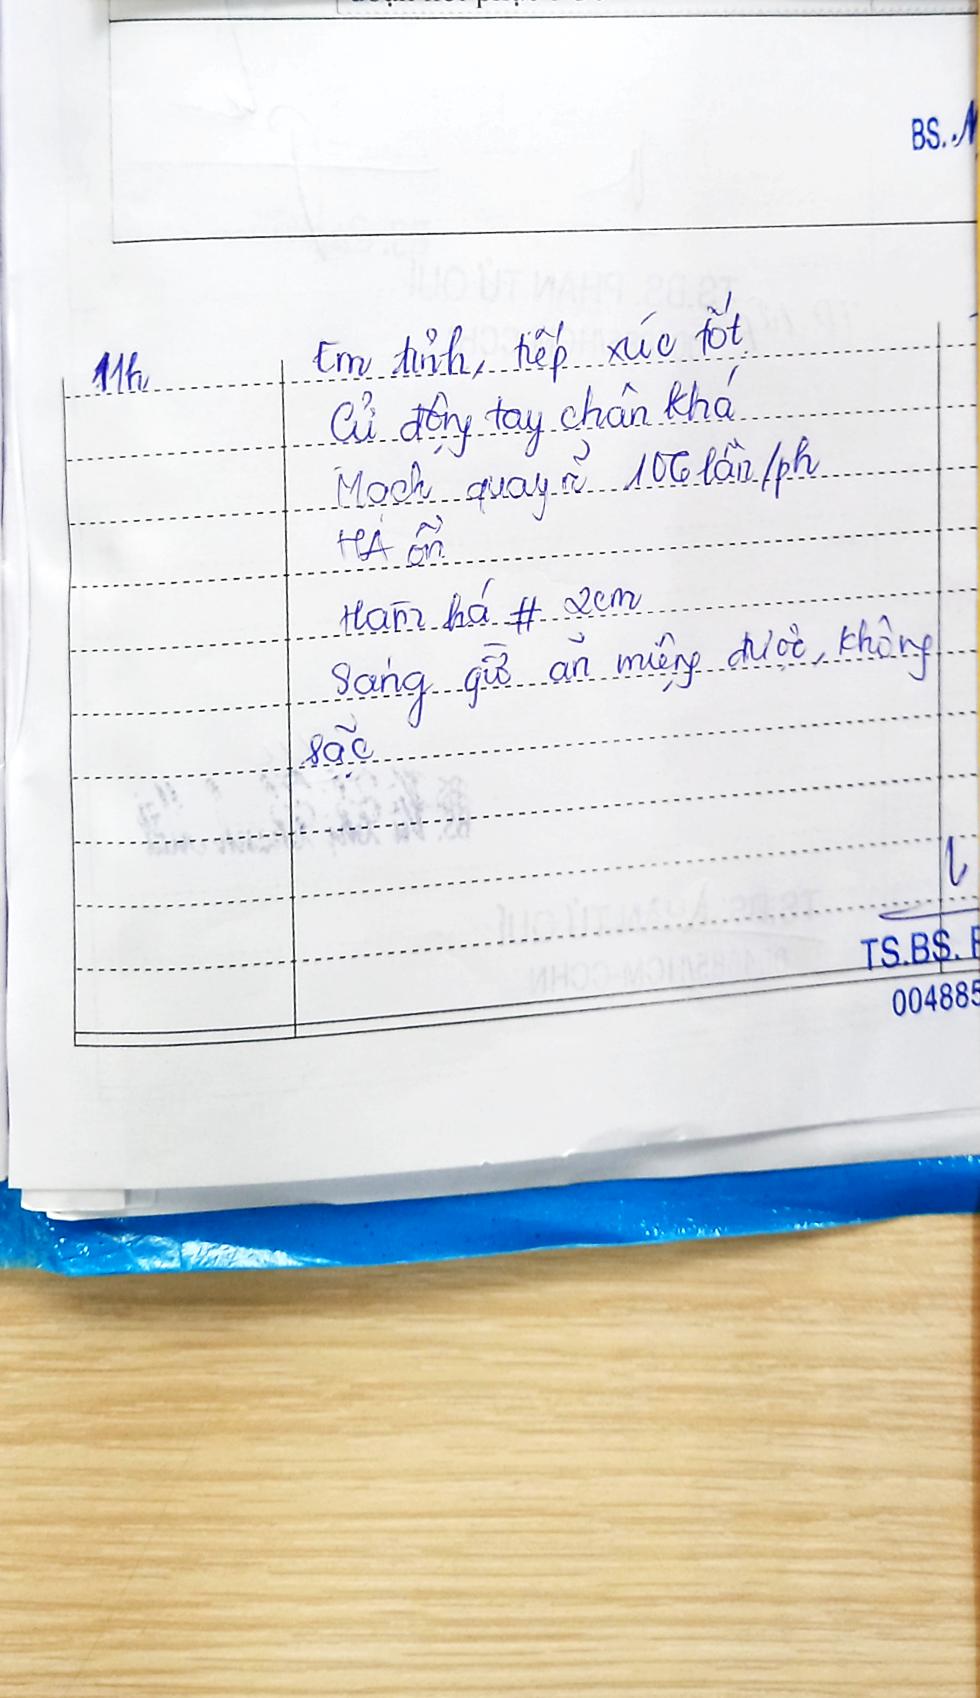 BS.
11h
Em tỉnh, tiếp xúc tốt
Cử động tay chân khá
Mạch quay rõ 106 lần/ph
HA ổn
Hàm há # 2cm
Sáng giờ ăn miệng được, không
sặc
TS.BS.
004885